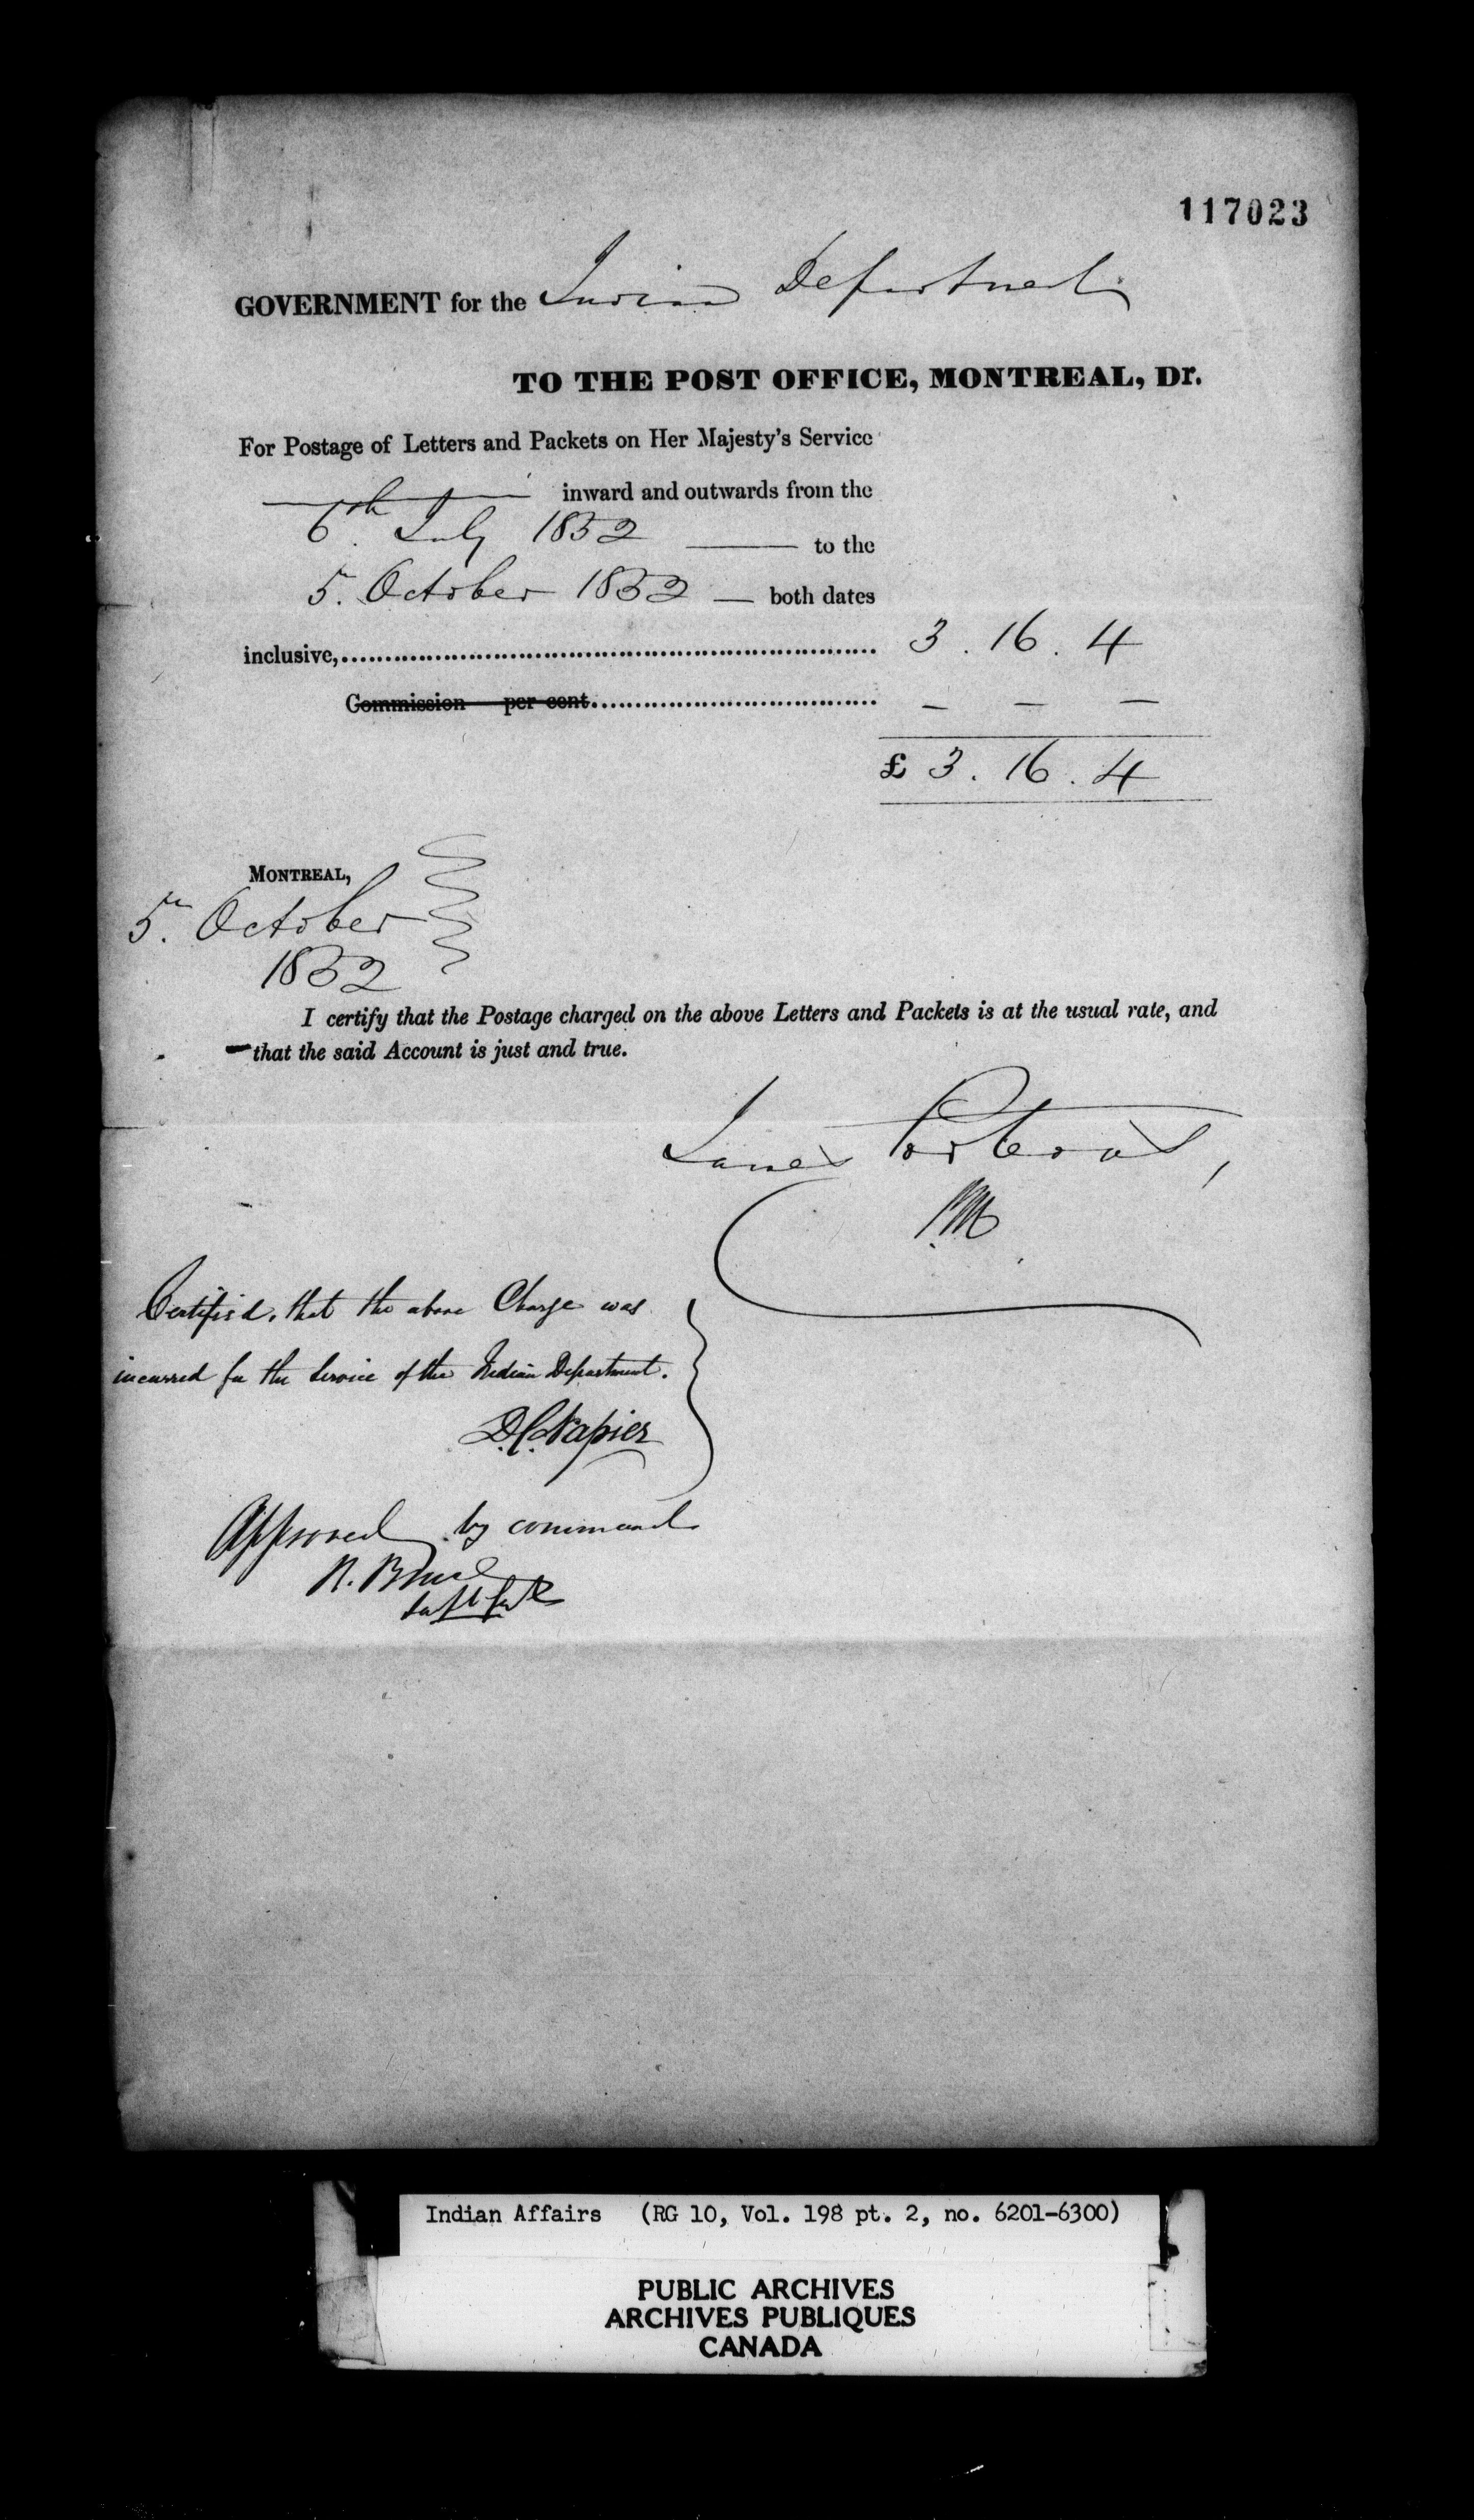 117023
GOVERNMENT for the Indian Department
TO THE POST OFFICE, MONTREAL, Dr.
For Postage of Letters and Packets on Her Majesty's Service
inward and outwards from the
6th July 1852 to the
5. October 1852 — both dates
inclusive,.......... 3 . 16 . 4
Commission per cent.......... — — —
£ 3 . 16 . 4
MONTREAL,
5th October
1852
I certify that the Postage charged on the above Letters and Packets is at the usual rate, and
that the said Account is just and true.
James Porteous,
P.M
Certified, that the above Charge was
incurred for the Service of the Indian Department.
D.C. Napier
Approved by command
R. Bruce
Indian Affairs (RG 10, Vol. 198 pt. 2, no. 6201-6300)
PUBLIC ARCHIVES
ARCHIVES PUBLIQUES
CANADA